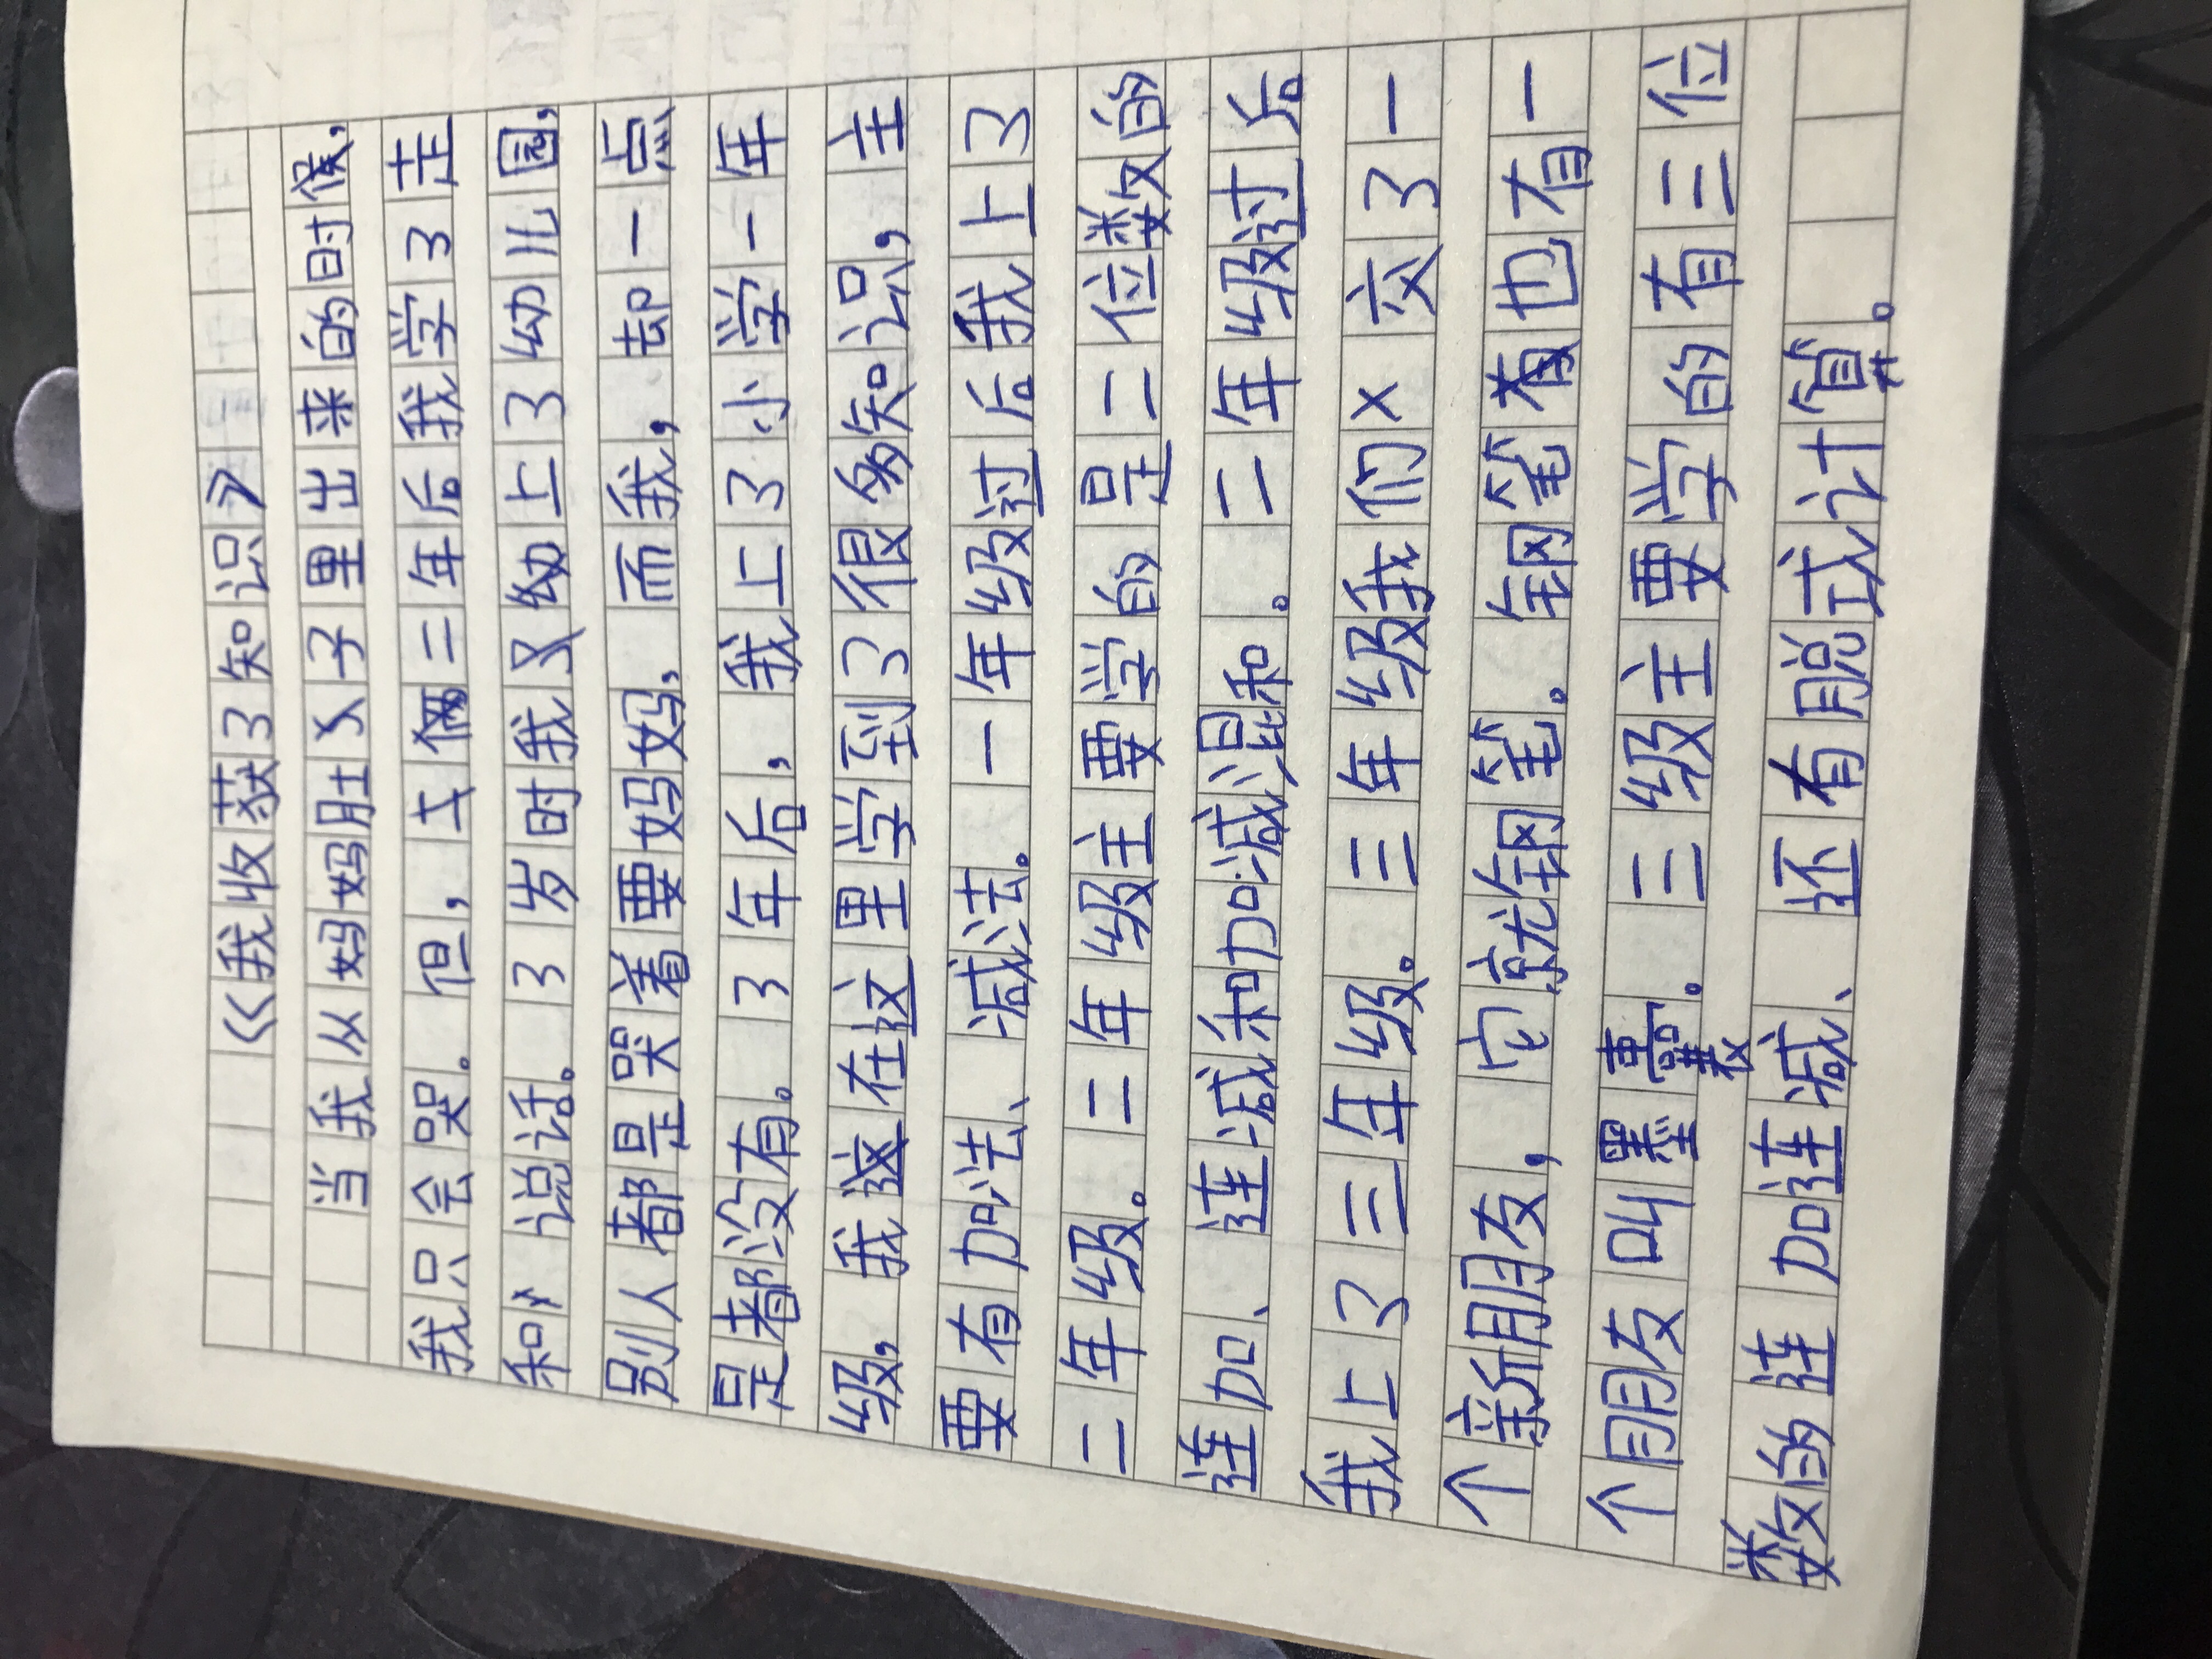 《我收获了知识》
当我从妈妈肚子里出来的时候,
我只会哭。但,二年后我学了走
和说话。3岁时我又上了幼儿园,
别人都是哭着要妈妈,而我,却一点
是都没有。3年后,我上了小学一年
级,我在这里学到了很多知识,主
要有加法、减法。一年级过后我上了
二年级。二年级主要学的是二位数的
连加、连减和加减混和。二年级过后
我上了三年级。三年级我们交了一
个新朋友,它就钢笔。钢笔也有一
个朋友叫墨囊。三级主要学的有三位
数的连加连减、还有脱式计算。